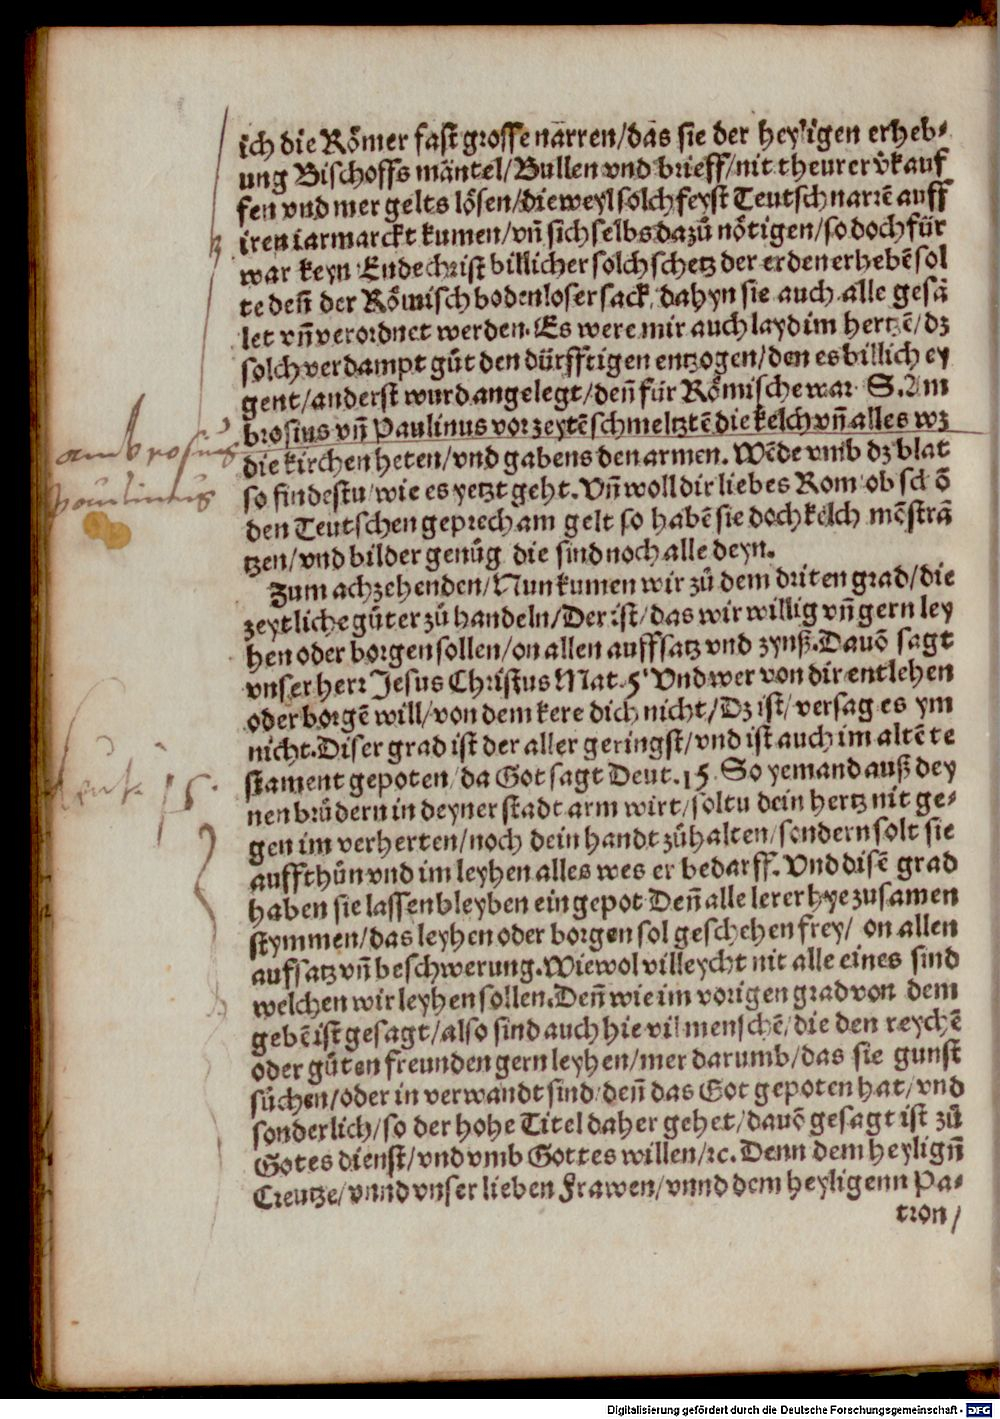 ich die Rômer fast grosse narren/das sie der heyligen erheb-
ung Bischoffs mäntel/Bullen vnd brieff/nit theurer v̊kauf
fen vnd mer gelts lôsen/dieweyl solch feyst Teutsch narrē auff
iren iarmarckt kumen/vñ sich selbs dazů nôtigen/so doch für
war keyn Endechrist billicher solch schetz der erden erhebē sol
te deñ der Rômisch bodenloser sack, dahyn sie auch alle gesā
let vñ verordnet werden. Es were mir auch layd im hertzē/dz
solch verdampt gůt den dürfftigen entzogen/den es billich ey
gent/anderst wurd angelegt/deñ für Rômische war S. Am
brosius vñ Paulinus vor zeytē schmeltztē die kelch vñ alles wz
die kirchen heten/vnd gabens den armen. Wēde vmb dz blat
so findestu wie es yetzt geht. Vñ woll dir liebes Rom ob sch ō
den Teutschen geprech am gelt so habē sie doch kelch mēstrā
tzen/vnd bilder genůg die sind noch alle deyn.
Zum achzehenden/Nun kumen wir zů dem driten grad/die
zeytliche gůter zů handeln/Der ist/das wir willig vñ gern ley
hen oder borgen sollen/on allen auffsatz vnd zynß. Dauō sagt
vnser herr Jesus Christus Mat. 5 Vnd wer von dir entlehen
oder borgē will/von dem kere dich nicht/Dz ist/versag es ym
nicht. Diser grad ist der aller geringst/vnd ist auch im altē te
stament gepoten/da Got sagt Deut. 15. So yemand auß dey
nen brůdern in deyner stadt arm wirt/soltu dein hertz nit ge-
gen im verherten/noch dein handt zůhalten/sondern solt sie
auffthůn vnd im leyhen alles wes er bedarff. Vnd disē grad
haben sie lassen bleyben ein gepot Deñ alle lerer hye zusamen
stymmen/das leyhen oder borgen sol geschehen frey/ on allen
aufsatz vñ beschwerung. Wiewol villeycht nit alle eines sind
welchen wir leyhen sollen. Deñ wie im vorigen grad von dem
gebē ist gesagt/also sind auch hie vil menschē/die den reychē
oder gůten freunden gern leyhen/mer darumb/das sie gunst
sůchen/oder in verwandt sind/deñ das Got gepoten hat/vnd
sonderlich/so der hohe Titel daher gehet/dauō gesagt ist zů
Gotes dienst/vnd vmb Gottes willen/ꝛc. Denn dem heyligñ
Creutze/vnnd vnser lieben Frawen/vnnd dem heyligenn Pa-
tron/
ambrosius
paulinus
deut. 15.
Digitalisierung gefördert durch die Deutsche Forschungsgemeinschaft - DFG